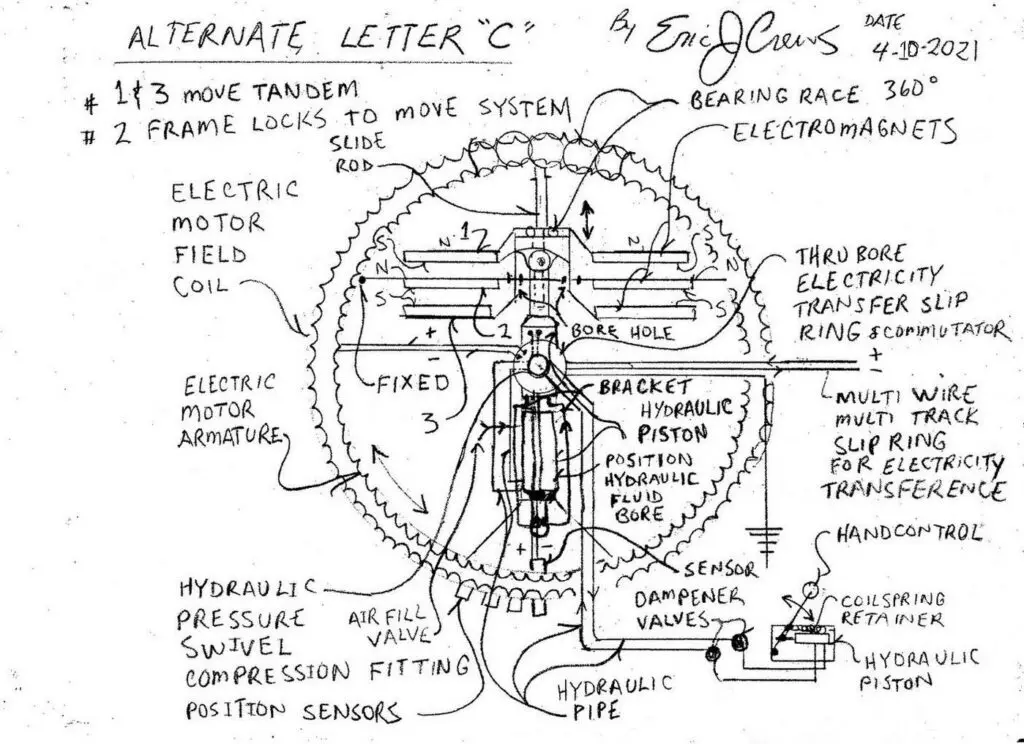 ALTERNATE LETTER "C"
By Eric J Crews
DATE
4-10-2021
# 1 & 3 MOVE TANDEM
# 2 FRAME LOCKS TO MOVE SYSTEM
BEARING RACE 360°
ELECTROMAGNETS
SLIDE
ROD
ELECTRIC
MOTOR
FIELD
COIL
1
N
N
S
S
N
N
S
S
2
BORE HOLE
THRU BORE
ELECTRICITY
TRANSFER SLIP
RING & COMMUTATOR
+
-
+
-
FIXED
3
ELECTRIC
MOTOR
ARMATURE
BRACKET
HYDRAULIC
PISTON
POSITION
HYDRAULIC
FLUID
BORE
MULTI WIRE
MULTI TRACK
SLIP RING
FOR ELECTRICITY
TRANSFERENCE
HANDCONTROL
+ -
SENSOR
DAMPENER
VALVES
COILSPRING
RETAINER
HYDRAULIC
PISTON
HYDRAULIC
PRESSURE
SWIVEL
COMPRESSION FITTING
AIR FILL
VALVE
POSITION SENSORS
HYDRAULIC
PIPE